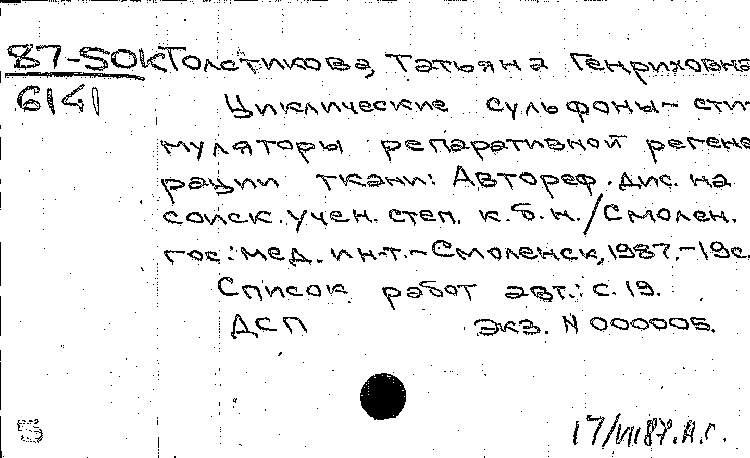 87-50К Толстикова, Татьяна Генриховна
6141
Циклические сульфоны - сти-
муляторы репаративной регене-
рации ткани: Автореф. дис. на
соиск. учен. степ. к.б.н./Смолен.
гос. мед. ин-т.-Смоленск, 1987.-19с.
Список работ авт.: с. 19.
ДСП экз. N 000005.
Б
17/VII 87. А.Г.